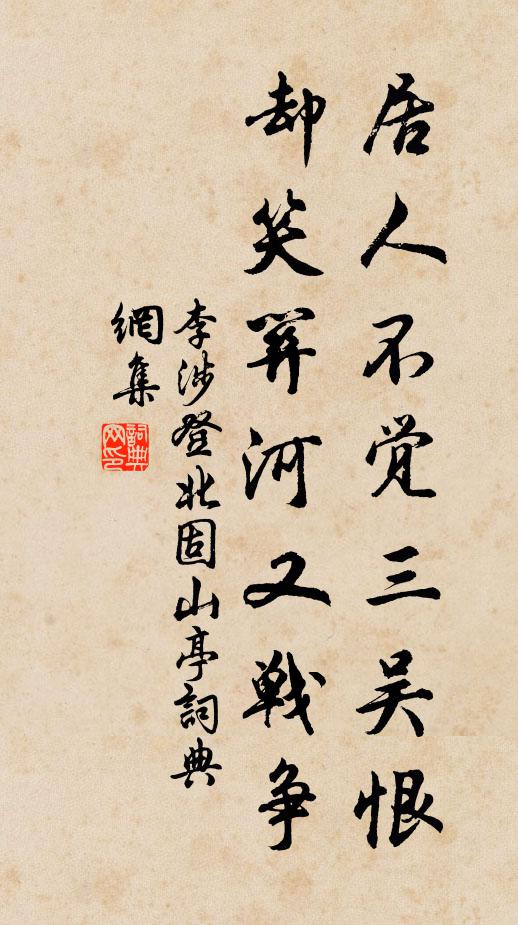 居人不觉三吴恨
却笑関河又戦争
李涉登北固山亭詞典
網集
詞典
网印